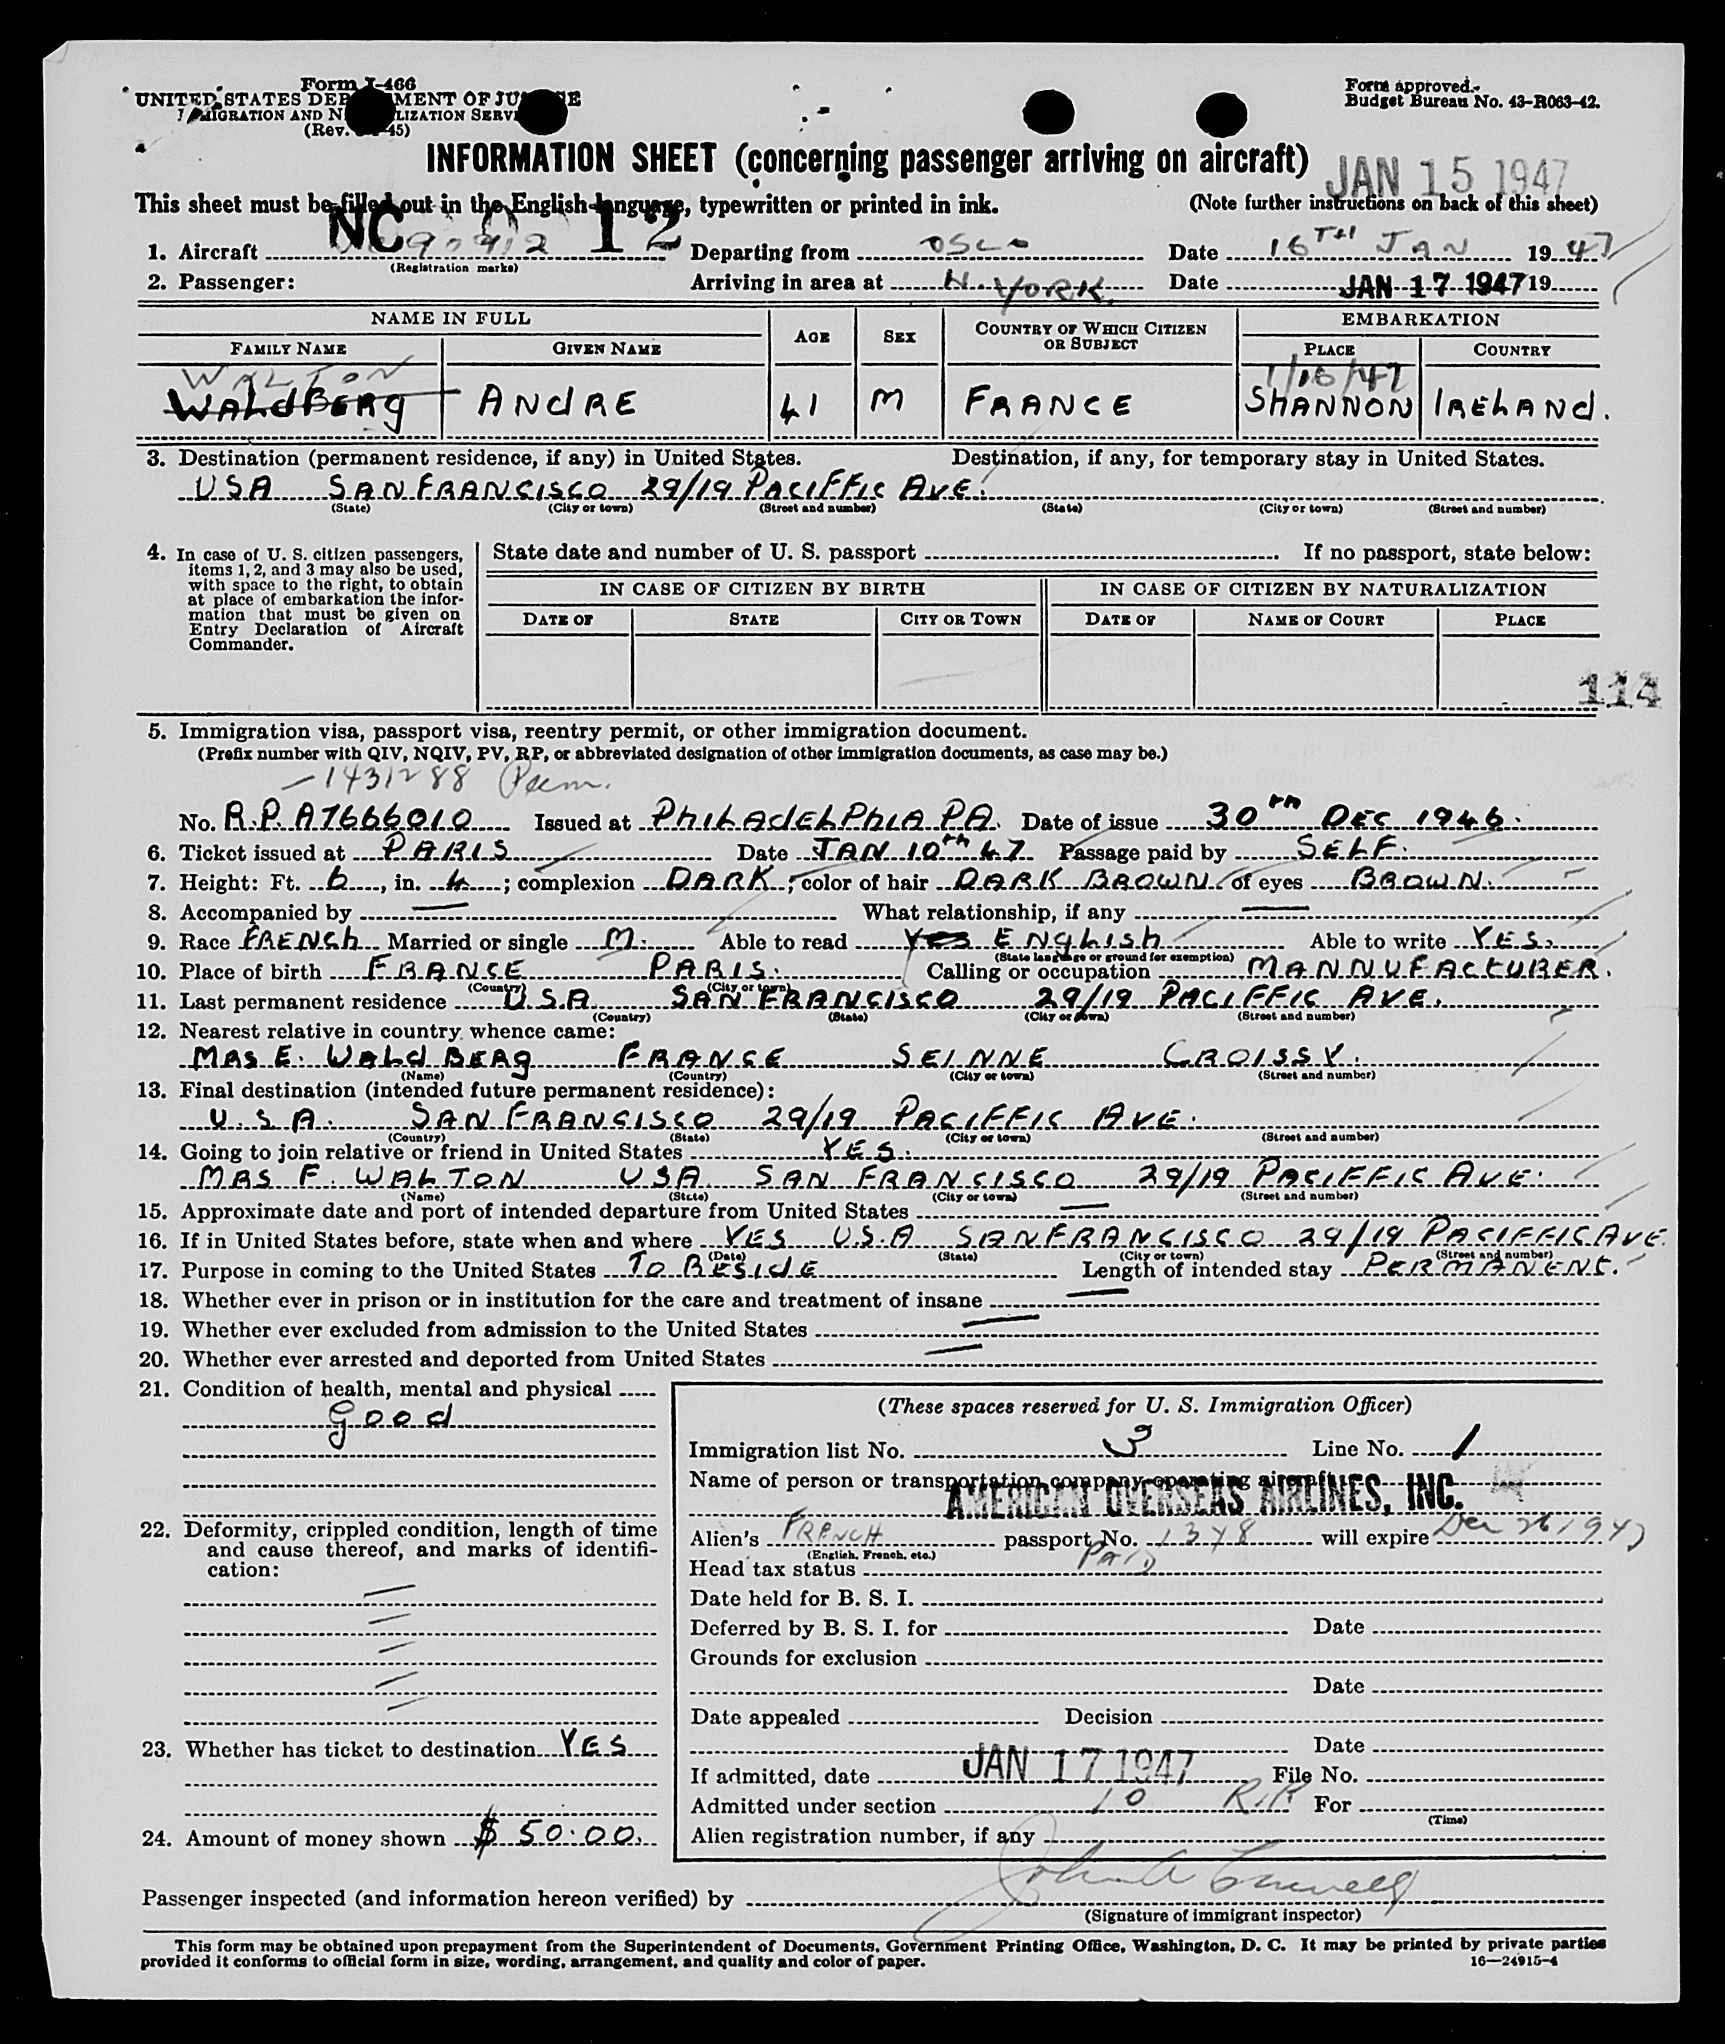 Form I-466
UNITED STATES DEPARTMENT OF JUSTICE
IMMIGRATION AND NATURALIZATION SERVICE
(Rev. 45)
Form approved.
Budget Bureau No. 43-R063-42.
INFORMATION SHEET (concerning passenger arriving on aircraft)
JAN 15 1947
This sheet must be filled out in the English language, typewritten or printed in ink. (Note further instructions on back of this sheet)
NC 12
1. Aircraft Departing from OSLO Date 16TH JAN 1947
(Registration marks)
2. Passenger: Arriving in area at N. YORK. Date JAN 17 1947 19
NAME IN FULL AGE SEX COUNTRY OF WHICH CITIZEN OR SUBJECT EMBARKATION
FAMILY NAME GIVEN NAME PLACE COUNTRY
WALTON 1/16/47
WALdBERg ANdRE 41 M FRANCE ShANNON IRELANd.
3. Destination (permanent residence, if any) in United States. Destination, if any, for temporary stay in United States.
USA SANFRANCISCO 29/19 PACIFFIC AVE.
(State) (City or town) (Street and number) (State) (City or town) (Street and number)
4. In case of U. S. citizen passengers, items 1, 2, and 3 may also be used, with space to the right, to obtain at place of embarkation the information that must be given on Entry Declaration of Aircraft Commander.
State date and number of U. S. passport If no passport, state below:
IN CASE OF CITIZEN BY BIRTH IN CASE OF CITIZEN BY NATURALIZATION
DATE OF STATE CITY OR TOWN DATE OF NAME OF COURT PLACE
114
5. Immigration visa, passport visa, reentry permit, or other immigration document.
(Prefix number with QIV, NQIV, PV, RP, or abbreviated designation of other immigration documents, as case may be.)
1431288 Perm.
No. R.P. A7666010 Issued at PhILAdELPhIA PA. Date of issue 30th DEC 1946.
6. Ticket issued at PARIS Date JAN 10th 47 Passage paid by SELF.
7. Height: Ft. 6, in. 4; complexion DARK; color of hair DARK BROWN. of eyes BROWN.
8. Accompanied by — What relationship, if any —
9. Race FRENCh Married or single M. Able to read YES ENGLISh Able to write YES.
(State language or ground for exemption)
10. Place of birth FRANCE PARIS. Calling or occupation MANNUFACTURER.
(Country) (City or town)
11. Last permanent residence USA SAN FRANCISCO 29/19 PACIFFIC AVE.
(Country) (State) (City or town) (Street and number)
12. Nearest relative in country whence came:
MRS E. WALdBERg FRANCE SEINNE CROISSY.
(Name) (Country) (City or town) (Street and number)
13. Final destination (intended future permanent residence):
U.S.A. SAN FRANCISCO 29/19 PACIFFIC AVE.
(Country) (State) (City or town) (Street and number)
14. Going to join relative or friend in United States YES.
MRS F. WALTON USA SAN FRANCISCO 29/19 PACIFFIC AVE.
(Name) (State) (City or town) (Street and number)
15. Approximate date and port of intended departure from United States —
16. If in United States before, state when and where YES U.S.A SANFRANCISCO 29/19 PACIFFIC AVE
(Date) (State) (City or town) (Street and number)
17. Purpose in coming to the United States TO RESIdE Length of intended stay PERMANENT.
18. Whether ever in prison or in institution for the care and treatment of insane —
19. Whether ever excluded from admission to the United States —
20. Whether ever arrested and deported from United States —
21. Condition of health, mental and physical
Good
22. Deformity, crippled condition, length of time and cause thereof, and marks of identification:
23. Whether has ticket to destination YES
24. Amount of money shown $ 50.00.
(These spaces reserved for U. S. Immigration Officer)
Immigration list No. 3 Line No. 1
Name of person or transportation company operating aircraft
AMERICAN OVERSEAS AIRLINES, INC.
Alien's FRENCH passport No. 1378 will expire Dec 26 1947
(English, French, etc.)
Head tax status PAID
Date held for B. S. I.
Deferred by B. S. I. for Date
Grounds for exclusion
Date
Date appealed Decision
Date
If admitted, date JAN 17 1947 File No.
Admitted under section 10 R.P. For
(Time)
Alien registration number, if any
Passenger inspected (and information hereon verified) by
(Signature of immigrant inspector)
This form may be obtained upon prepayment from the Superintendent of Documents, Government Printing Office, Washington, D. C. It may be printed by private parties
provided it conforms to official form in size, wording, arrangement, and quality and color of paper.
16—24915-4